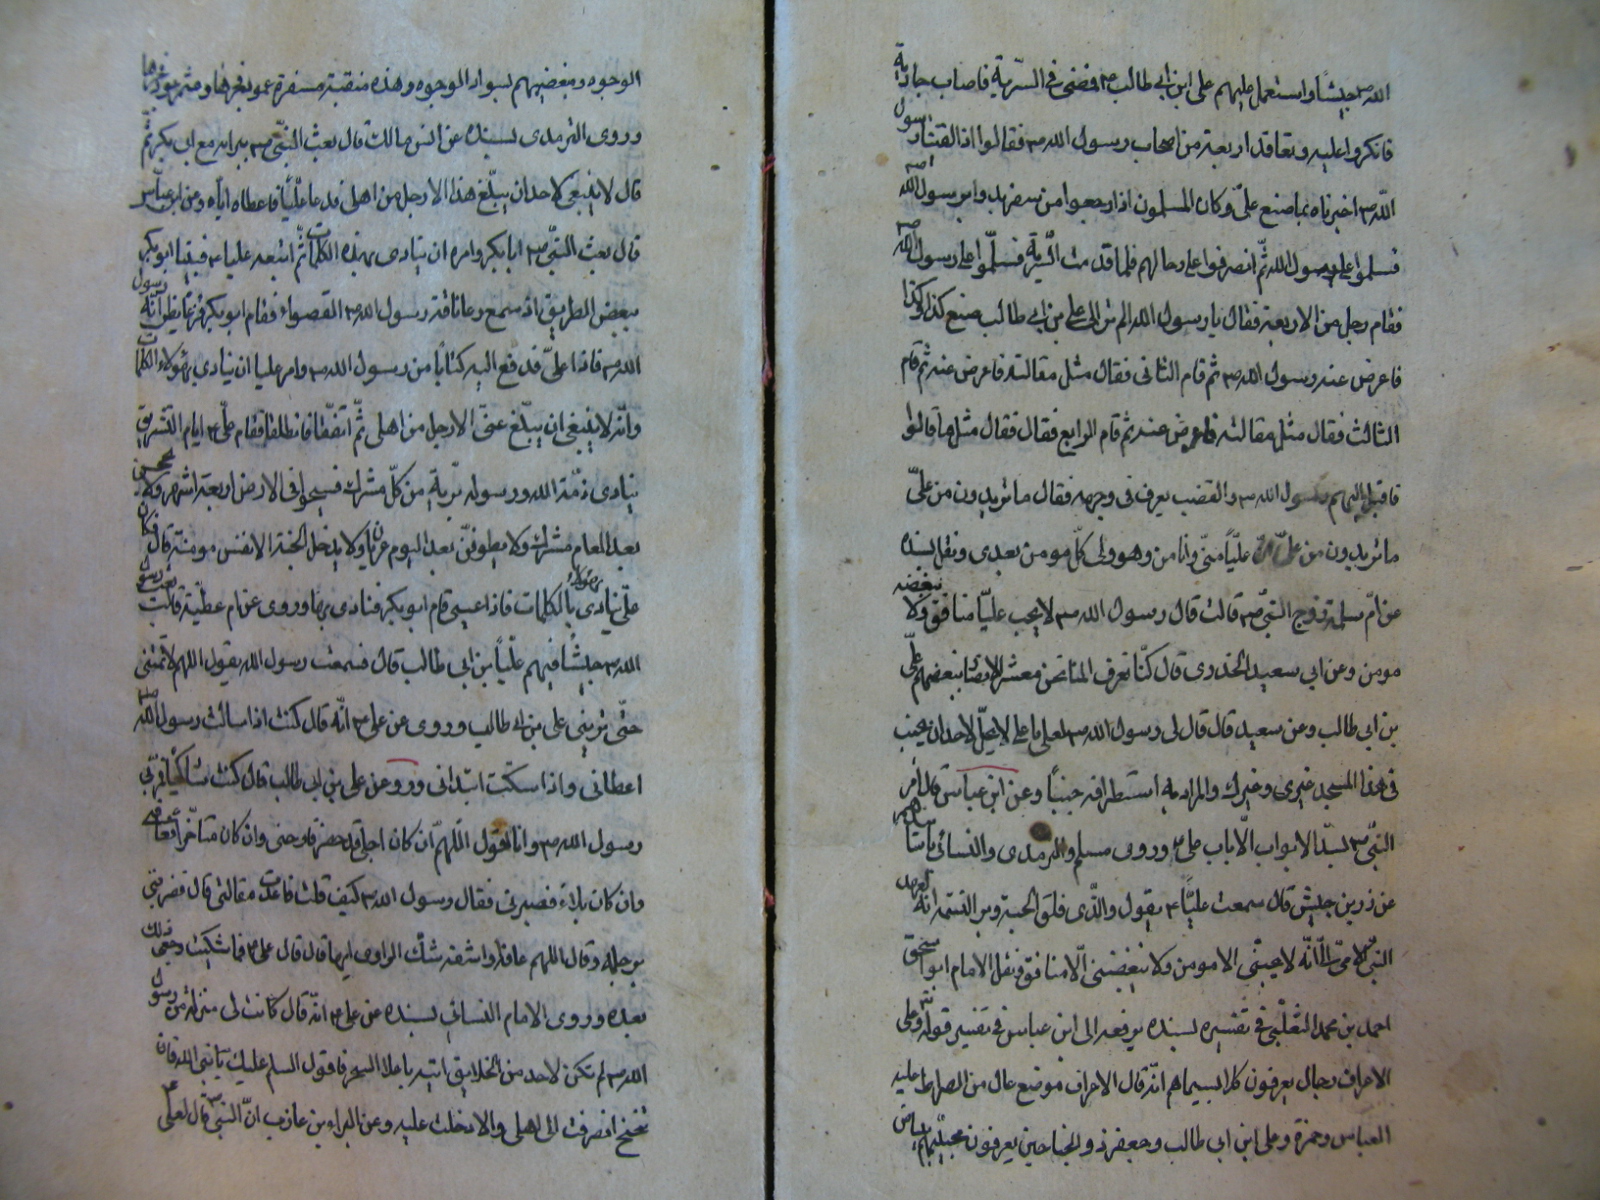 الله ص جيشا واستعمل عليهم على ابن ابى طالب ع فمضى فى السرية فاصاب جارية
فانكروا عليه وتعاقد اربعة من اصحاب رسول الله ص فقالوا اذا لقينا رسول
الله ص اخبرناه بما صنع علىّ وكان المسلمون اذا رجعوا من سفر بدوا برسول الله ص
فسلموا على رسول الله ثمّ انصرفوا على رحالهم فلما قدمت السّرية فسلّموا على رسول الله ص
فقام رجل من الاربعة فقال يا رسول الله الم تر الى على بن ابى طالب صنع كذا وكذا
فاعرض عنه رسول الله ص ثم قام الثانى فقال مثل مقالته فاعرض عنه ثم قام
الثالث فقال مثل مقالته فاعرض عنه ثم قام الرابع فقال فقال مثل ما قالوا
فاقبل اليهم رسول الله ص والغضب يعرف فى وجهه فقال ما تريدون من علىّ
ما تريدون من علىّ انّ عليّاً منّى وانا من وهو ولى كلّ مومن بعدى ونقل بسنده
عن امّ سلمة زوج النبىّ ص قالت قال رسول الله ص لا يحب عليّا منافق ولا يبغضه
مومن وعن ابى سعيد الخدرى قال كنّا نعرف المنا نحن معشر الانصار ببغضهم علىّ
بن ابى طالب وعن سعيد قال قال لى رسول الله ص لعلى يا على لا يحلّ لاحد ان يجنب
فى هذا المسجد غيرى وغيرك والمراد به استطراقه جنباً وعن ابن عباس قال امر
النبىّ ص بسدّ الابواب الّا باب على ع وروى مسلم والترمدى والنسائى
عن زر بن حبيش قال سمعت عليّاً ع يقول والّذى فلق الحبة وبرا النسمه انه لعهد
النبىّ الامىّ الىّ انّه لا يحبّنى الا مومن ولا يبغضنى الّا منافق ونقل الامام ابو اسحق
احمد بن محمد الثعلبى فى تفسيره بسنده يرفعه الى ابن عباس فى تفسير قوله تع وعلى
الاعراف رجال يعرفون كلا بسيماهم انّه قال الاعراف موضع عال من الصراط عليه
العباس وحمزة وعلى ابن ابى طالب وجعفر ذو الجناحين يعرفون محبيّهم ببياض
الوجوه ومبغضيهم بسواد الوجوه وهذه منقبة مسفرة
وروى الترمدى بسنده عن انس مالك قال بعث النبّى ص ببراءه مع ابى بكر ثمّ
قال لا ينبغى لاحد ان يبلّغ هذا الا رجل من اهلى فدعا عليّاً فاعطاه ايّاه وعن ابن عبّاس
قال بعث النبىّ ص ابا بكر وامره ان ينادى بهذه الكلمات ثمّ اتبعه عليا ع فبينا ابو بكر
ببعض الطريق اذ سمع رغا ناقة رسول الله ص القصواء فقام ابو بكر فزعا يظن انّه رسول
الله ص فاذا علىّ فدفع اليه كتابا من رسول الله ص وامر عليا ان ينادى بهولاء الكلمات
وانّه لا ينبغى ان يبلّغ عنىّ الا رجل من اهلى ثمّ اتفقا فانطلقا فقام علىّ ع ايام التشريق
ينادى ذمّة الله ورسوله بريّة من كلّ مشرك فسيحوا فى الارض اربعة اشهر ولا يحجن
بعد العام مشرك ولا يطوفنّ بعد اليوم عريان ولا يدخل الجنة الا نفس مومنة قال فكان
علىّ ينادى بهولاء الكلمات فاذا عيى قام ابو بكر فنادى بها وروى عن ام عطيّة قالت بعث رسول
الله ص جيشاً فيهم عليّاً بن ابى طالب قال فسمعت رسول الله يقول اللهم لا تمتنى
حتّى ترينى على بن ابى طالب وروى عن على ع انّه قال كنت اذا سالت رسول الله ص
اعطانى واذا سكتت ابتدانى ورو وعن على بن ابى طالب قال كنت شاكيا فمرّ بى
رسول الله ص وانا اقول اللّهم ان كان اجلى قد حضر فارحنى وان كان متاخرا
وان كان بلاء فصبرنى فقال رسول الله ص كيف قلت فاعدت مقالتى قال فضربنى
برجله وقال اللهم عافه واشفه شك الراوى ايهما قال قال على ع فما شكيت وجعى ذلك
بعده وروى الامام النسائى بسنده عن على ع انّه قال كانت لى منزلة من رسول
الله ص لم تكن لاحد من الخلايق اتيه باعلا السحر فاقول السلم عليك يا نبى الله فان
تنحنح انصرفت الى اهلى والا دخلت عليه وعن البراء بن عازب انّ النبى ص قال لعلى ع